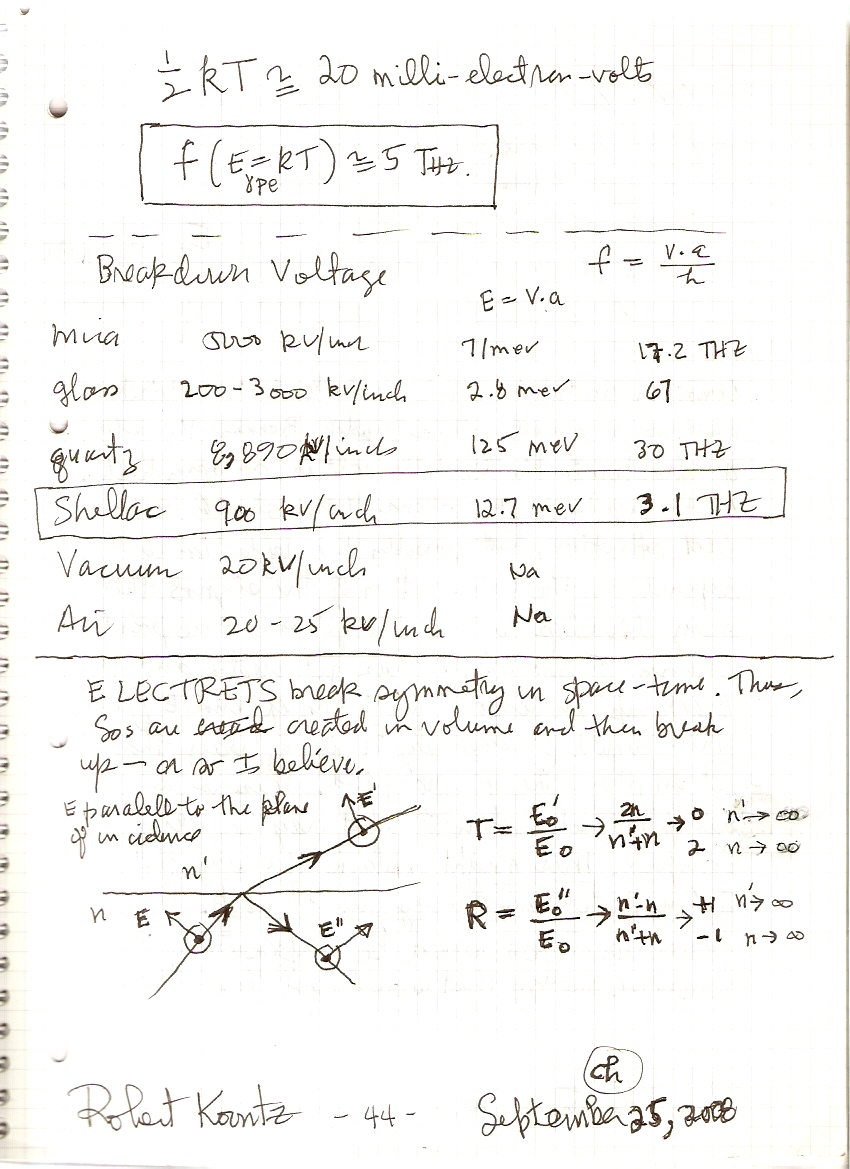 1/2 kT ≅ 20 milli-electron-volts
f (E = kT) ≅ 5 THz.
γpe
Breakdown Voltage
f = V·a/h
E = V·a
mica 5000 kV/inch 71 mev 17.2 THZ
glass 200-3000 kV/inch 2.8 mev 67
quartz 8,890 kV/inch 125 mev 30 THZ
Shellac 900 kV/inch 12.7 mev 3.1 THZ
Vacuum 20 kV/inch Na
Air 20-25 kV/inch Na
ELECTRETS break symmetry in space-time. Thus,
Sos are created in volume and then break
up — or so I believe.
E paralell to the plane
of incidence
E'
n'
n
E
E"
T = E₀'/E₀ → 2n/n'+n → 0 n' → ∞
2 n → ∞
R = E₀"/E₀ → n'-n/n'+n → +1 n' → ∞
-1 n → ∞
ch
Robert Koontz - 44 - September 25, 2008